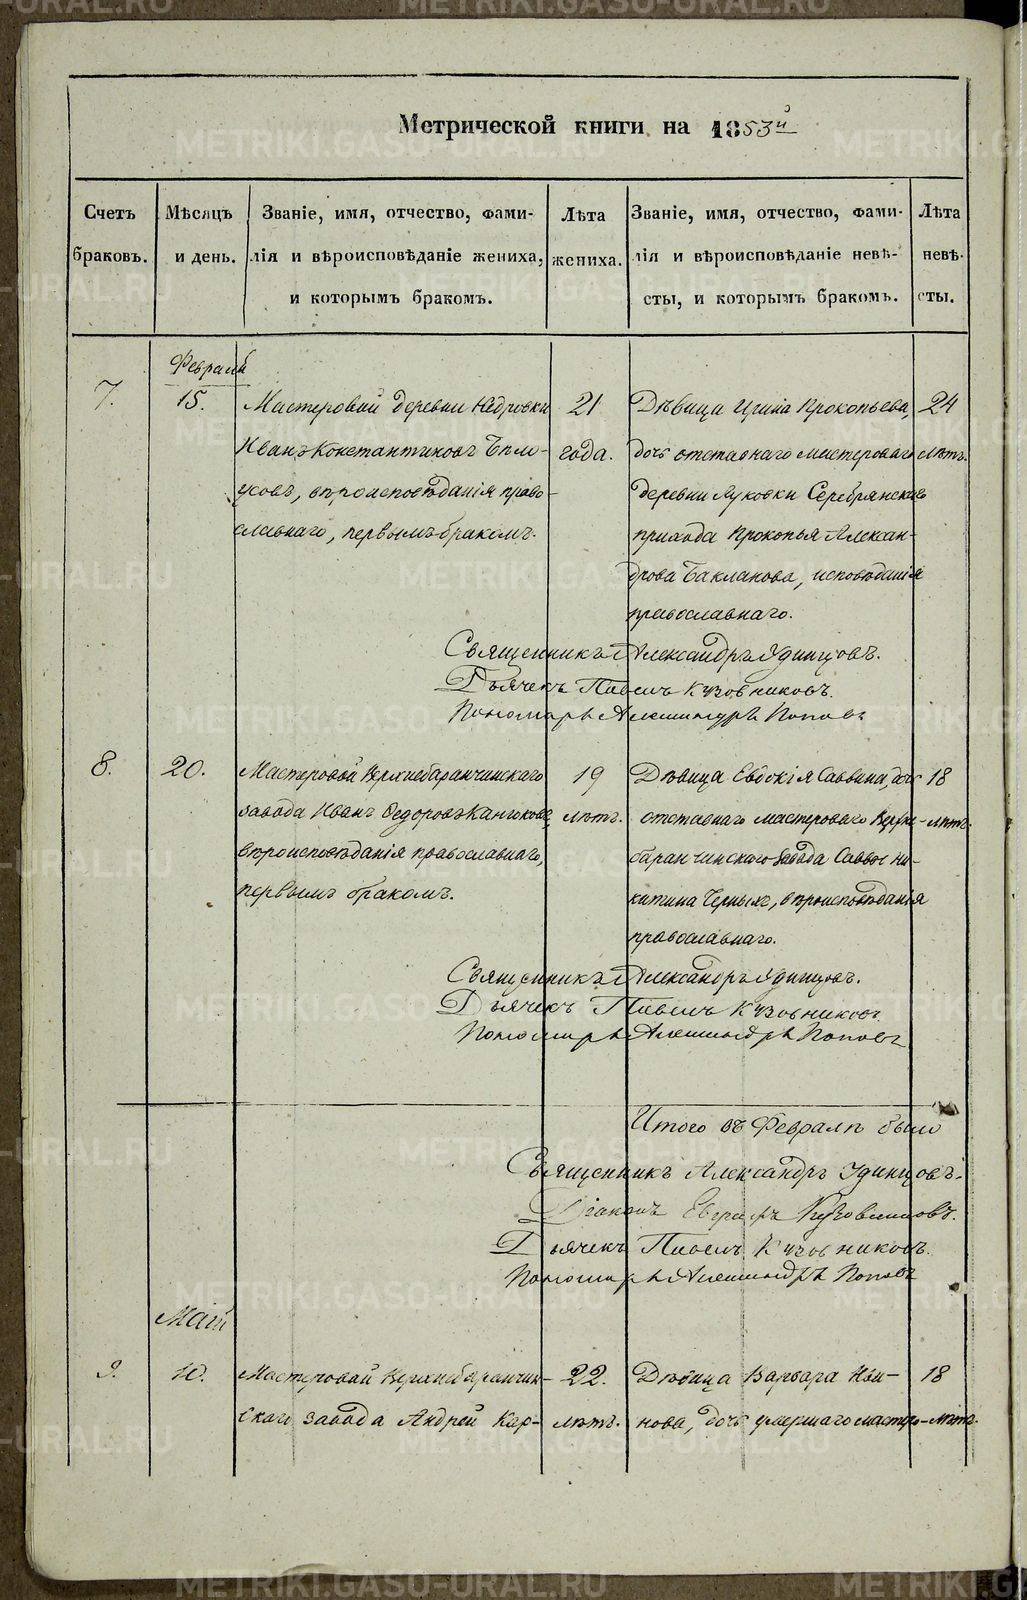 Метрической книги на 1853й
Счетъ браковъ.
Мѣсяцъ и день.
Званіе, имя, отчество, фами-
лія и вѣроисповѣданіе жениха,
и которымъ бракомъ.
Лѣта жениха.
Званіе, имя, отчество, фами-
лія и вѣроисповѣданіе невѣ-
сты, и которымъ бракомъ.
Лѣта невѣ-
сты.
Февраль
7.
15.
Мастеровой деревни
Иванъ Константиновъ Бѣло-
усовъ, вѣроисповѣданія право-
славнаго, первымъ бракомъ.
21
года.
Дѣвица Ирина Прокопьева,
дочь отставнаго мастероваго
деревни Луковки Серебрянскаго
прихода Прокопья Алексан-
дрова Бакланова, исповѣданія
православнаго.
24
лѣтъ.
Священникъ Александръ Удинцовъ.
Дьячекъ Павелъ Кузовниковъ.
Пономарь Александръ Поповъ
8.
20.
Мастеровой Верхнебаранчинскаго
завода Иванъ Федоровъ
вѣроисповѣданія православнаго,
первымъ бракомъ.
19
лѣтъ.
Дѣвица Евдокія Саввина, дочь
отставнаго мастероваго Верхне-
баранчинскаго завода Саввы Ни-
китина Черныхъ, вѣроисповѣданія
православнаго.
18
лѣтъ.
Священникъ Александръ Удинцовъ.
Дьячекъ Павелъ Кузовниковъ
Пономарь Александръ Поповъ
Итого въ Февралѣ было
Священникъ Александръ Удинцовъ.
Діаконъ Евграфъ Кузовниковъ.
Дьячекъ Павелъ Кузовниковъ.
Пономарь Александръ Поповъ
Май
9.
10.
Мастеровой Верхнебаранчин-
скаго завода Андрей Кар-
22.
лѣтъ.
Дѣвица Варвара Ива-
нова, дочь умершаго мастеро-
18
лѣтъ.
METRIKI.GASO-URAL.RU